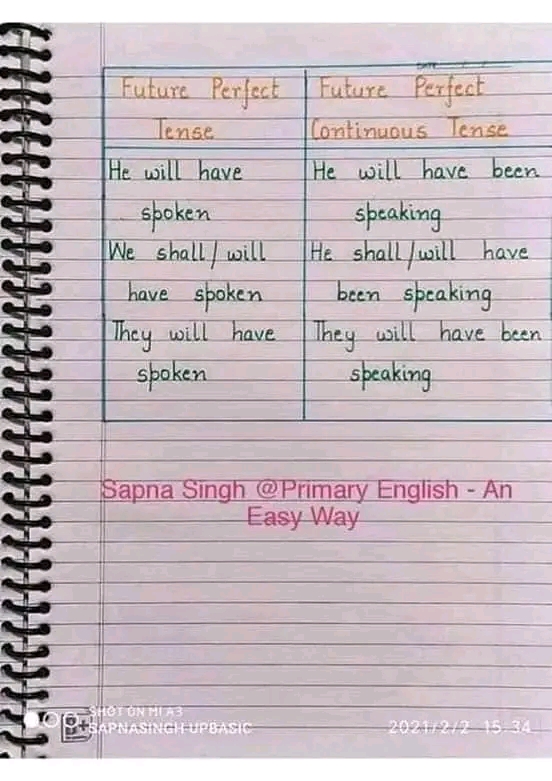 DATE / /
Future Perfect
Tense
He will have
spoken
We shall/will
have spoken
They will have
spoken
Future Perfect
Continuous Tense
He will have been
speaking
He shall/will have
been speaking
They will have been
speaking
Sapna Singh @Primary English - An
Easy Way
SHOT ON MI A3
SAPNASINGH UPBASIC
2021/2/2 15:34